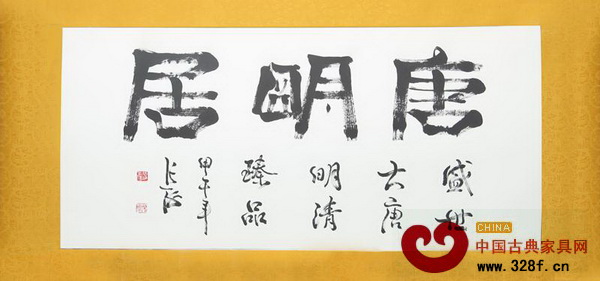 唐明居
盛世
大唐
明清
臻品
甲午年
CHINA
中国古典家具网
www.328f.cn